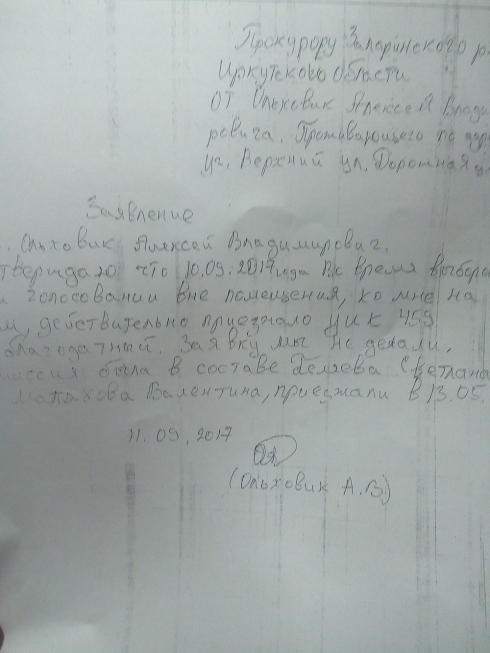 Прокурору Заларинского р
Иркутского области
от Ольховик Алексей Влади
ровича. Проживающего по адр
уч. Верхний ул. Дорожная
Заявление
. Ольховик Алексей Владимирович.
тверждаю что 10.09.2017 года Во время выборов
и голосовании вне помещения, ко мне на
м, действительно приезжало УИК 459
благодатный. Заявку мы не делали.
миссия была в составе Беляева Светлана
Малахова Валентина, приезжали в 13.05.
11.09.2017
(Ольховик А.В)